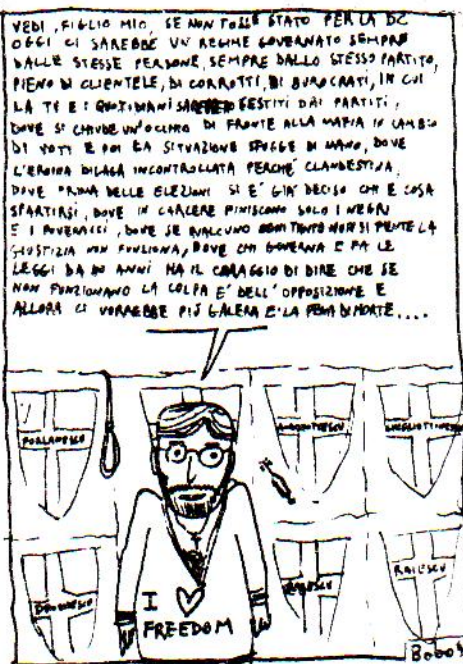 VEDI, FIGLIO MIO, SE NON FOSSE STATO PER LA DC
OGGI CI SAREBBE UN REGIME GOVERNATO SEMPRE
DALLE STESSE PERSONE, SEMPRE DALLO STESSO PARTITO,
PIENO DI CLIENTELE, DI CORROTTI, DI BUROCRATI, IN CUI
LA TV E I QUOTIDIANI GESTITI DAI PARTITI,
DOVE SI CHIUDE UN'OCCHIO DI FRONTE ALLA MAFIA IN CAMBIO
DI VOTI E POI LA SITUAZIONE SFUGGE DI MANO, DOVE
L'EROINA DILAGA INCONTROLLATA PERCHÉ CLANDESTINA,
DOVE PRIMA DELLE ELEZIONI SI E' GIA' DECISO CHI E COSA
SPARTIRSI, DOVE IN CARCERE FINISCONO SOLO I NEGRI
E I POVERACCI, DOVE SE QUALCUNO OGNI TANTO NON SI PENTE LA
GIUSTIZIA NON FUNZIONA, DOVE CHI GOVERNA E FA LE
LEGGI DA ANNI HA IL CORAGGIO DI DIRE CHE SE
NON FUNZIONANO LA COLPA E' DELL'OPPOSIZIONE E
ALLORA CI VORREBBE PIÙ GALERA E LA PENA DI MORTE....
FORLANESCU
RAILESCU
I ♡
FREEDOM